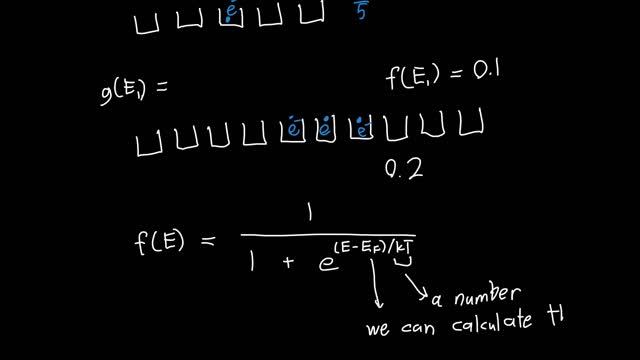 e 1/5
g(E₁) = f(E₁) = 0.1
e⁻ e⁻ e⁻
0.2
f(E) = 1 / (1 + e^((E-E_F)/kT))
a number
we can calculate